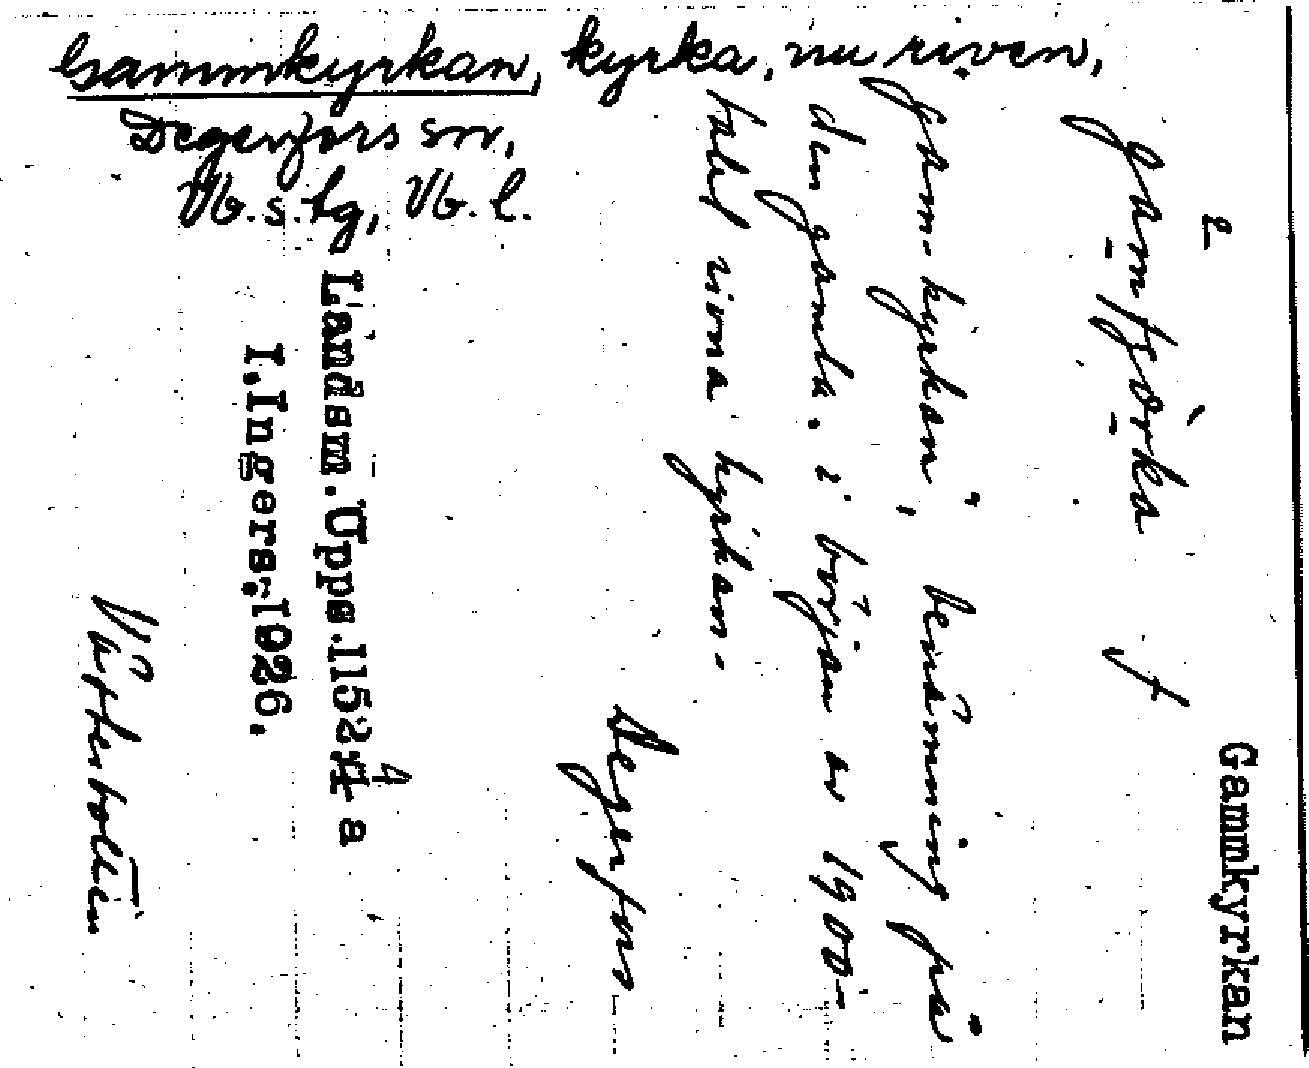 Gammkyrkan, kyrka, nu riven,
Degerfors sn,
Vb.s.lg, Vb.l.
Gammkyrkan
2
f
"Gam-kyrkan", benämning på
den gamla, i början av 1900-
talet rivna kyrkan.
Degerfors
Landsm.Upps.1152 4 a
I.Ingers,1926.
Västerbotten